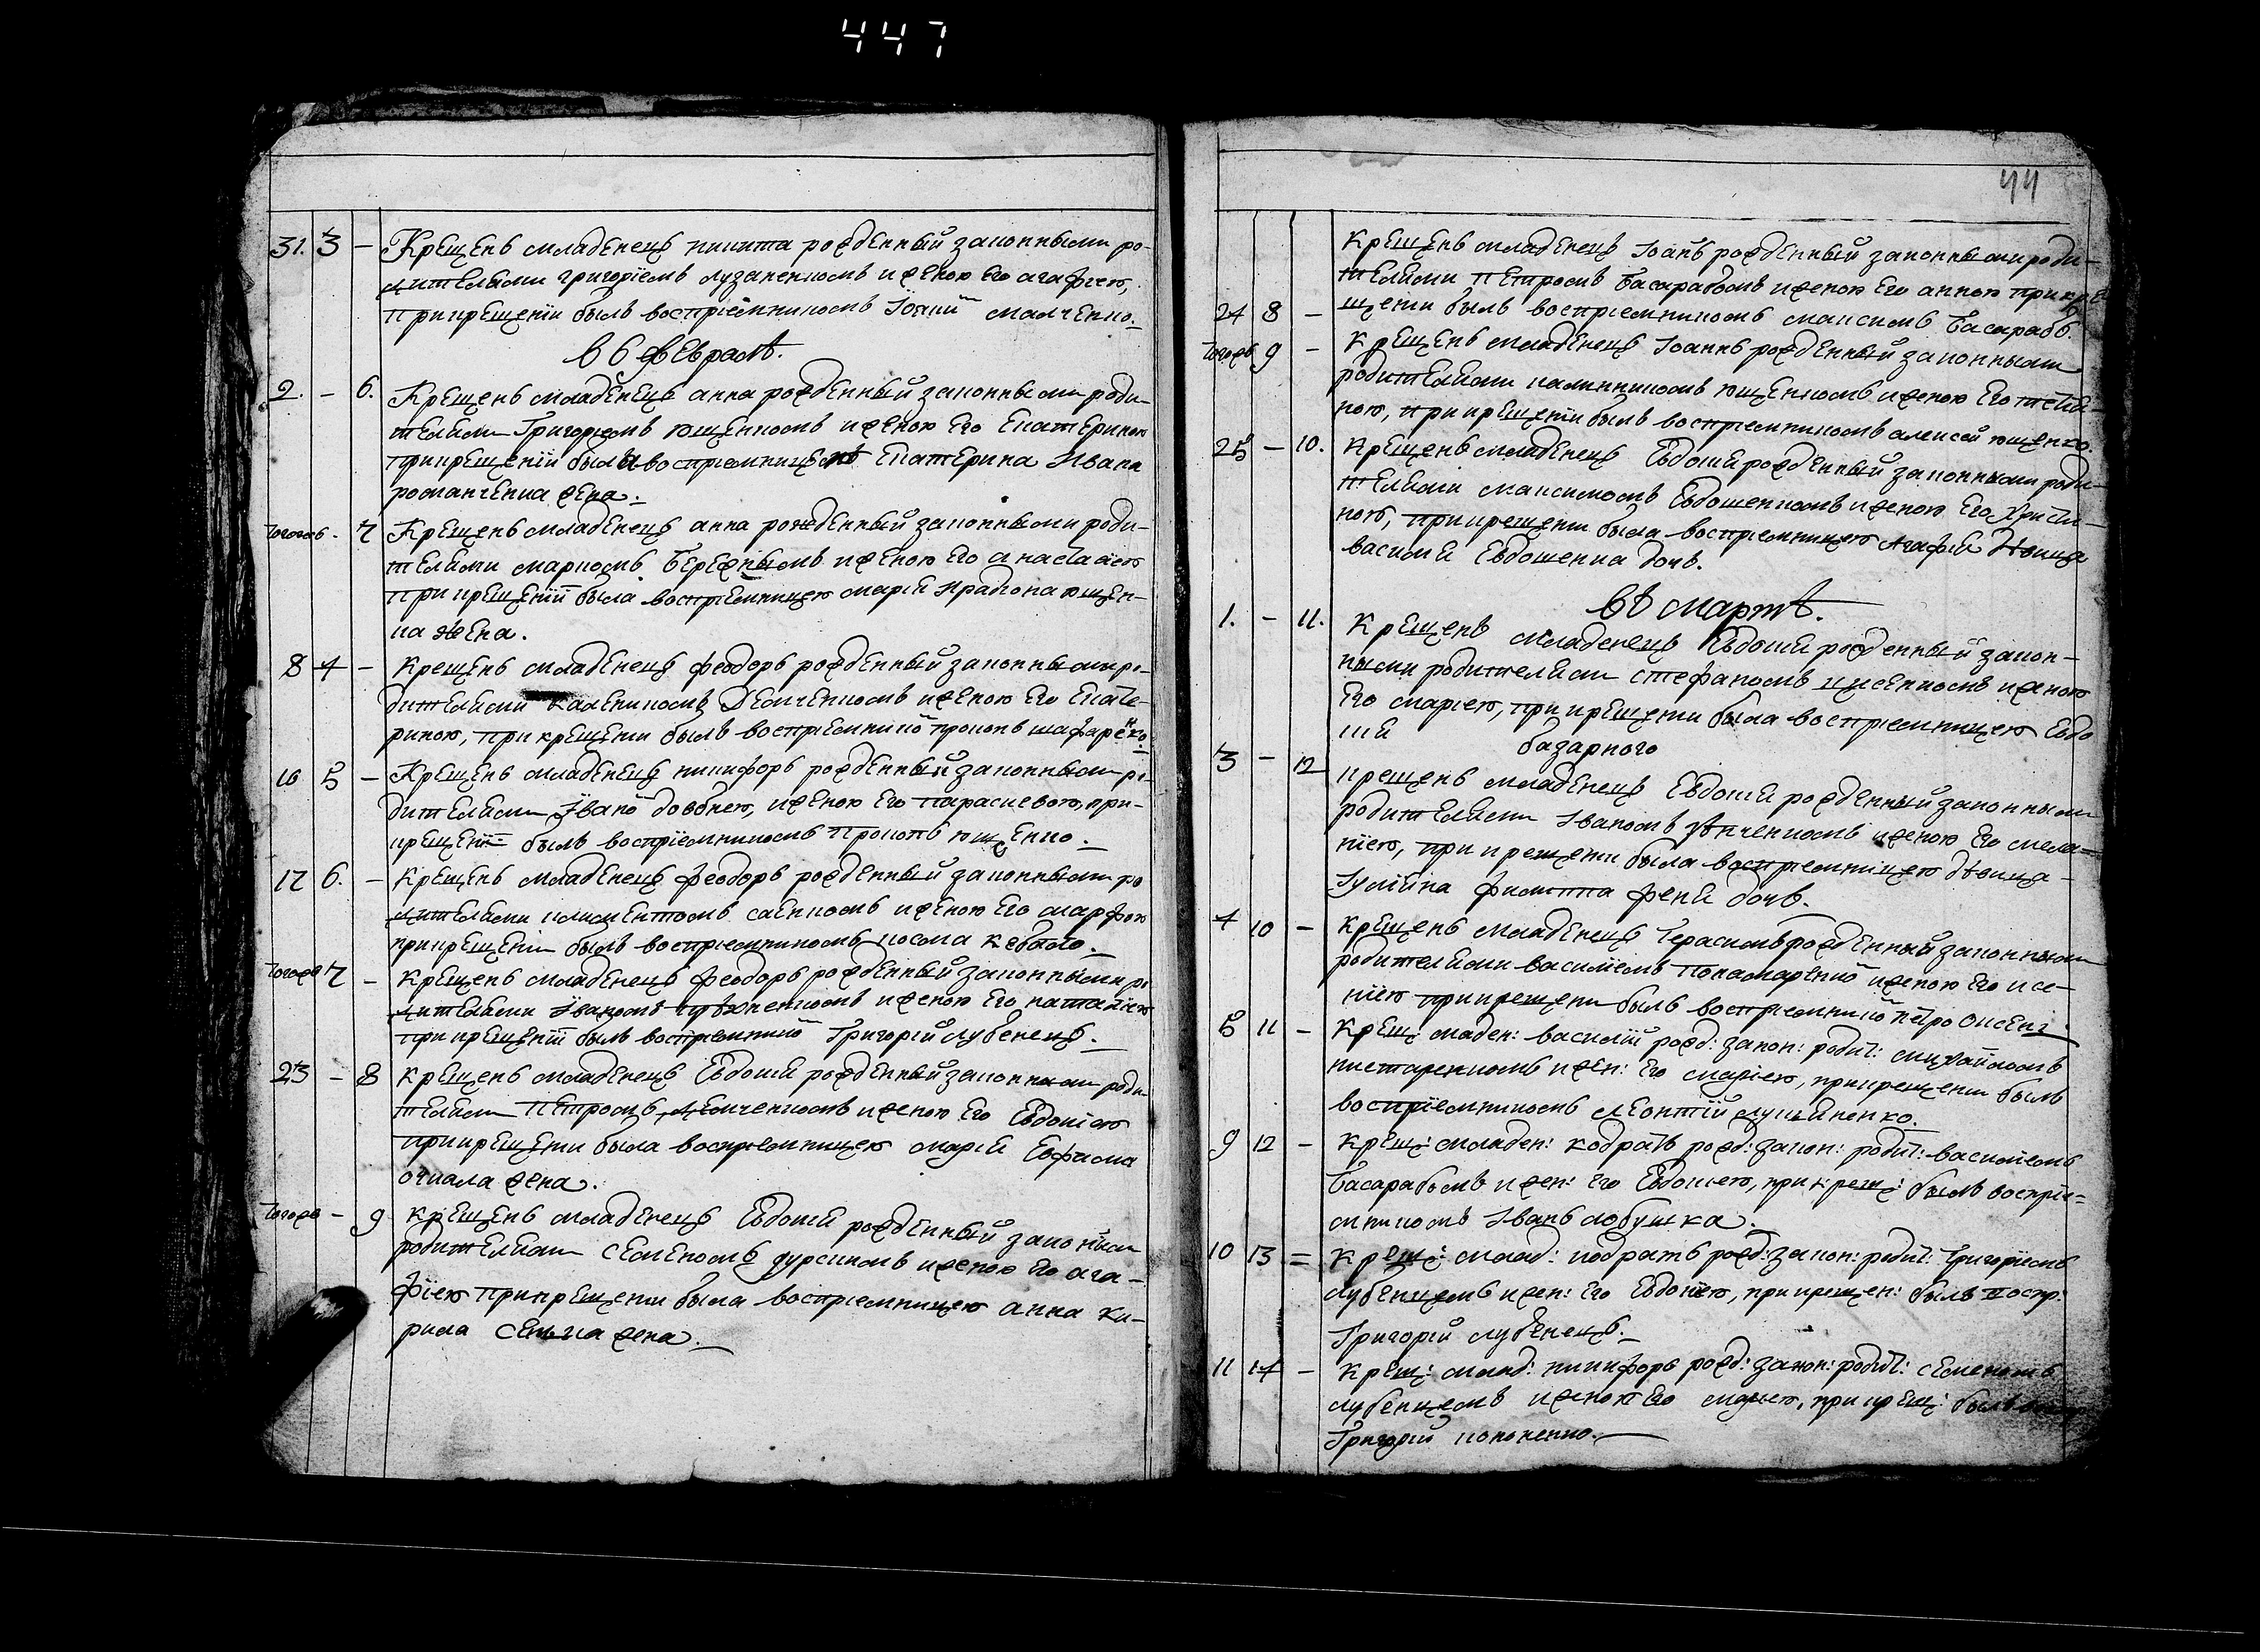 447
44
31. 3 – Крещенъ младенецъ никита рожденный законными ро-
дителями григоріемъ лузаненкомъ и женою его агафіею,
при крещеніи былъ воспріемникомъ Іоній малченко.
въ февралѣ.
2. – 6. Крещенъ младенецъ анна рожденный законными роди-
телями Григоріемъ ющенкомъ и женою его Екатериною
при крещеніи была воспріемницею Екатерина Ивана
романченка жена.
тогожъ – 7 Крещенъ младенецъ анна рожденный законными роди-
телями маркомъ бережнымъ и женою его анастасіею
при крещеніи была воспріемницею марія ющен-
ка жена.
8 4 – Крещенъ младенецъ феодоръ рожденный законными ро-
дителями каленикомъ Демченкомъ и женою его Екате-
риною, при крещеніи былъ воспріемнико прокопъ шафаренко
16 5 – Крещенъ младенецъ никифоръ рожденный законными ро-
дителями Івано довбнею, и женою его параскевою, при
крещеніи былъ воспріемникомъ Прокопъ ющенко.
17 6. – Крещенъ младенецъ феодоръ рожденный законными ро
дителями климентомъ саенкомъ и женою его марфою
при крещеніи былъ воспріемникомъ косма
тогожъ 7 – Крещенъ младенецъ феодоръ рожденный законными ро
дителями Іваномъ и женою его наталіею
при крещеніи былъ воспріемнико Григорій лубенецъ.
23 – 8 Крещенъ младенецъ Евдокія рожденный законными роди
телями Петромъ демченкомъ и женою его Евдокіею
при крещеніи была воспріемницею марія Евфима
очкала жена.
тогожъ – 9 Крещенъ младенецъ Евдокія рожденный законными
родителями семеномъ и женою его ага-
фіею при крещеніи была воспріемницею анна ки-
рила жена.
Крещенъ младенецъ Іоанъ рожденный законными роди-
телями петромъ басарабомъ и женою его анною при кре
24 8 – щеніи былъ воспріемникомъ максимъ басарабъ.
тогожъ 9 – Крещенъ младенецъ Іоаннъ рожденный законными
родителями калинникомъ ющенкомъ и женою его татія-
ною, при крещеніи былъ воспріемникомъ алексей ющенко.
25 – 10. Крещенъ младенецъ Евдокія рожденный законными роди-
телями максимомъ Евдошенкомъ и женою его христи-
ною, при крещеніи была воспріемницею агафія дѣвица
василія Евдошенка дочь.
въ мартѣ.
1. – 11. Крещенъ младенецъ Евдокія рожденный закон-
ными родителями стефаномъ и женою
его маріею, при крещеніи была воспріемницею Евдо
кія базарного
3 – 12 крещенъ младенецъ Евдокія рожденный законными
родителями Іваномъ и женою его мела-
ніею, при крещеніи была воспріемницею дѣвица
Іуліяна филиппа дочь.
4 10 – Крещенъ младенецъ Герасимъ рожденный законными
родителями василіемъ понамаренко и женою его ксе-
ніею при крещеніи былъ воспріемнико петро
5 11 – Крещ: младен: василій рожд: закон: родит: михайломъ
нестеренкомъ и жен: его маріею, при крещеніи былъ
воспріемникомъ леонтій лукяненко.
9 12 – Крещ: младен: кодратъ рожд: закон: родит: василіемъ
басарабомъ и жен: его Евдокіею, при крещ: былъ воспріе-
мникомъ Іванъ лобушка.
10 13 = Крещ: млад: кодратъ рожд: закон: родит: Григоріемъ
лубенцемъ и жен: его Евдокіею, при крещен: былъ воспр:
Григорій лубенецъ.
11 14 – Крещ: млад: никифоръ рожд: закон: родит: семеномъ
лубенцемъ и женою его маріею, при крещ: былъ
Григорій кононенко.